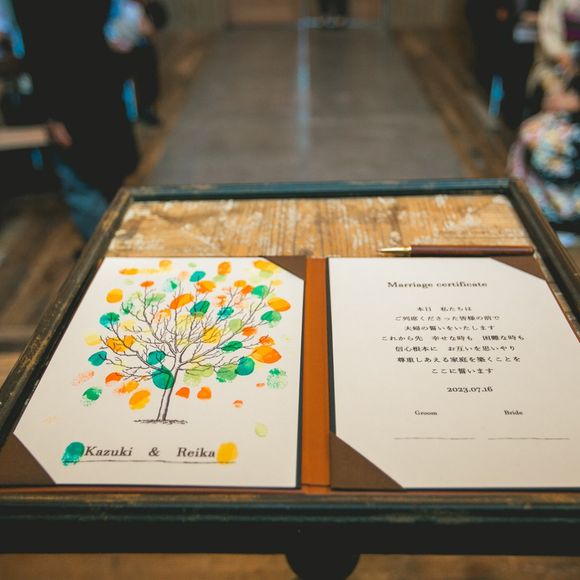 Kazuki & Reika
Marriage certificate
本日　私たちは
ご列席くださった皆様の前で
夫婦の誓いをいたします
これから先　幸せな時も　困難な時も
信心根本に　お互いを思いやり
尊重しあえる家庭を築くことを
ここに誓います
2023.07.16
Groom Bride